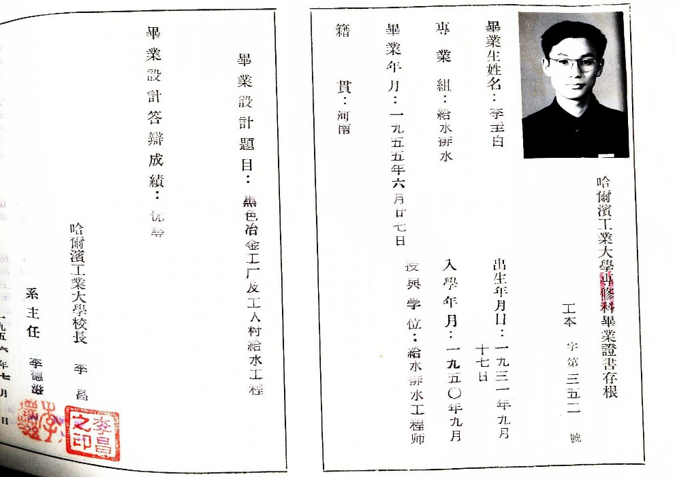 哈爾濱工業大學專修科畢業證書存根
工本 字第三五二一號
畢業生姓名：李圭白
出生年月日：一九三一年九月
十七日
專業組：給水排水
入學年月：一九五〇年九月
畢業年月：一九五五年六月廿七日
授與學位：給水排水工程师
籍貫：河南
畢業設計題目：黑色冶金工厂及工人村給水工程
畢業設計答辯成績：优等
哈爾濱工業大學校長 李昌
李昌之印
系主任
一九五六年七月 日